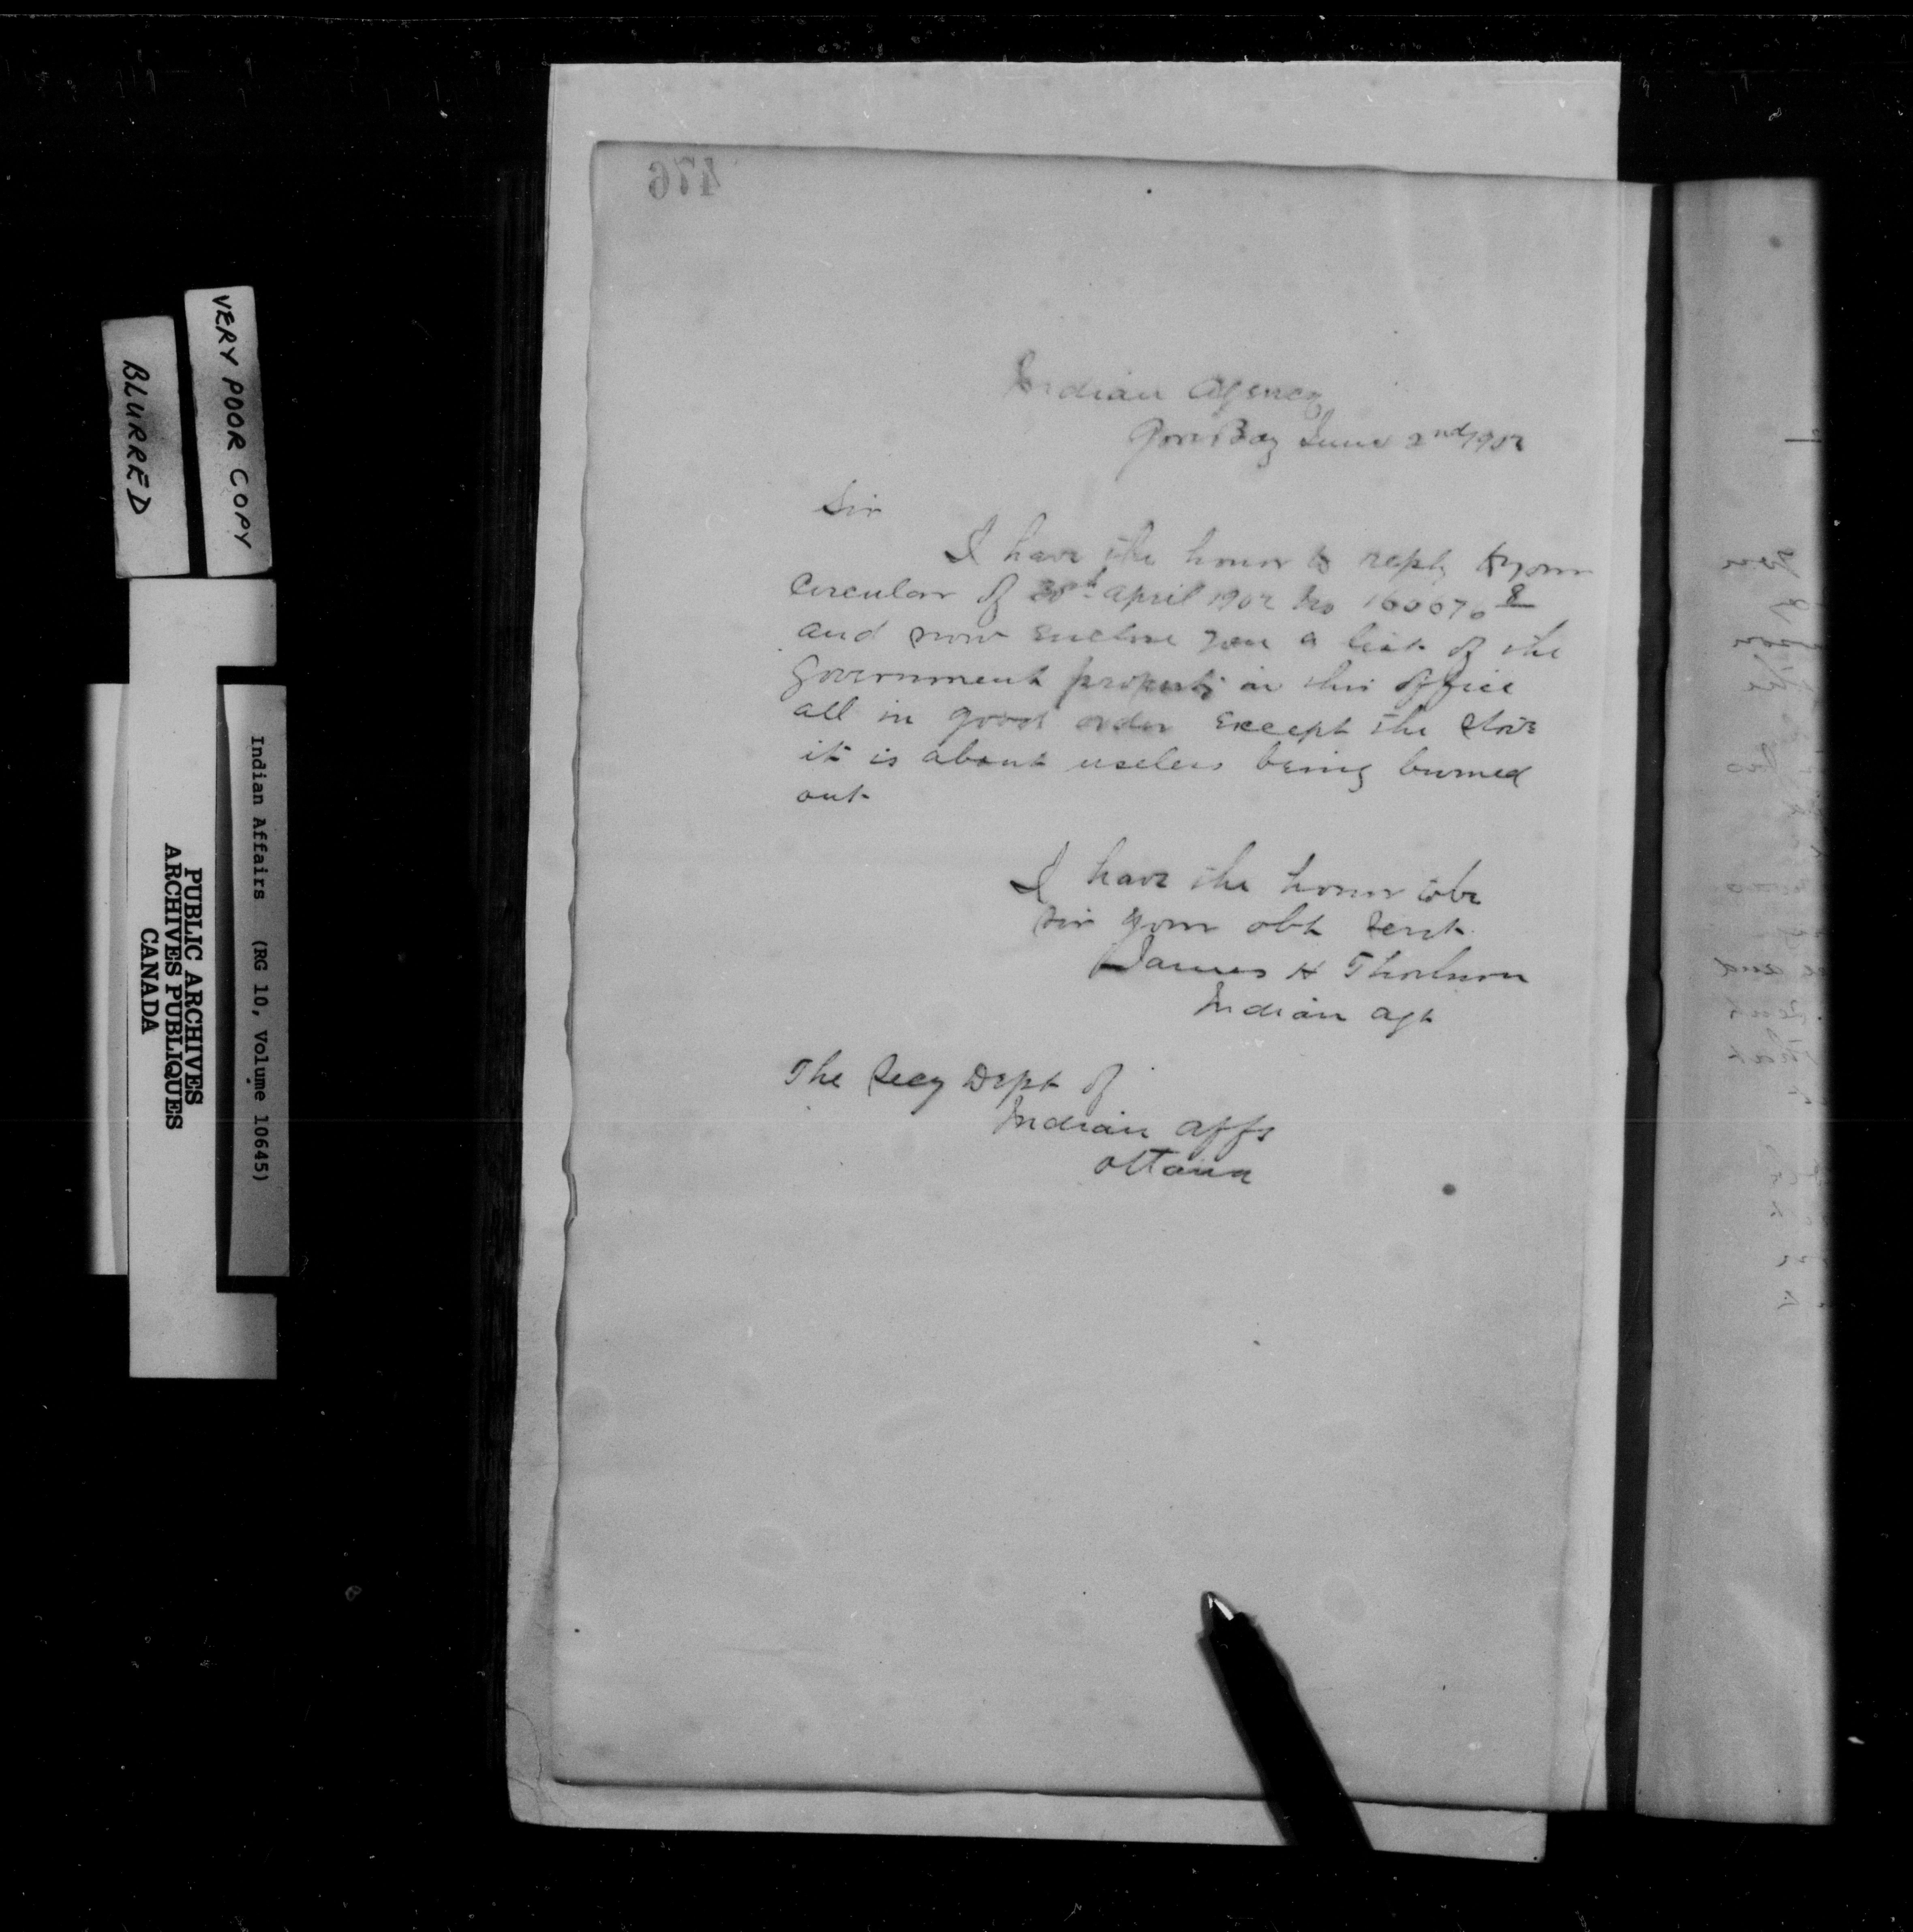 476
Indian Agency
Gore Bay June 2nd 1902
Sir
I have the honor to reply to your
Circular of 30th April 1902 No 160676 8
and now enclose you a list of the
Government property in this office
all in good order except the stove
it is about useless being burned
out
I have the honor to be
Sir your obt Servt
James H Thorburn
Indian agt
The Secy Dept of
Indian affs
Ottawa
VERY POOR COPY
BLURRED
Indian Affairs (RG 10, Volume 10645)
PUBLIC ARCHIVES
ARCHIVES PUBLIQUES
CANADA